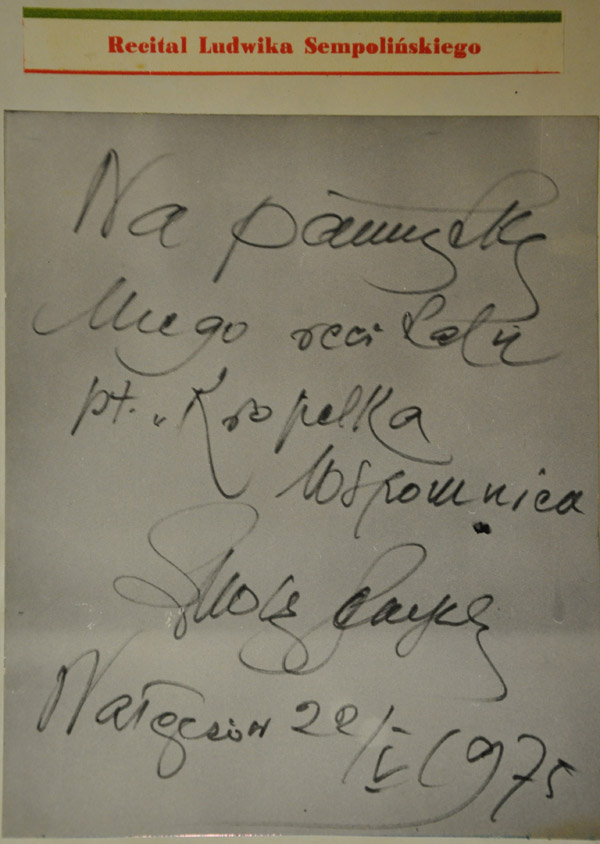 Recital Ludwika Sempolińskiego
Na pamiątkę
Mego recitalu
pt. „Kropelka
Wspomnień
Nałęczów 1975